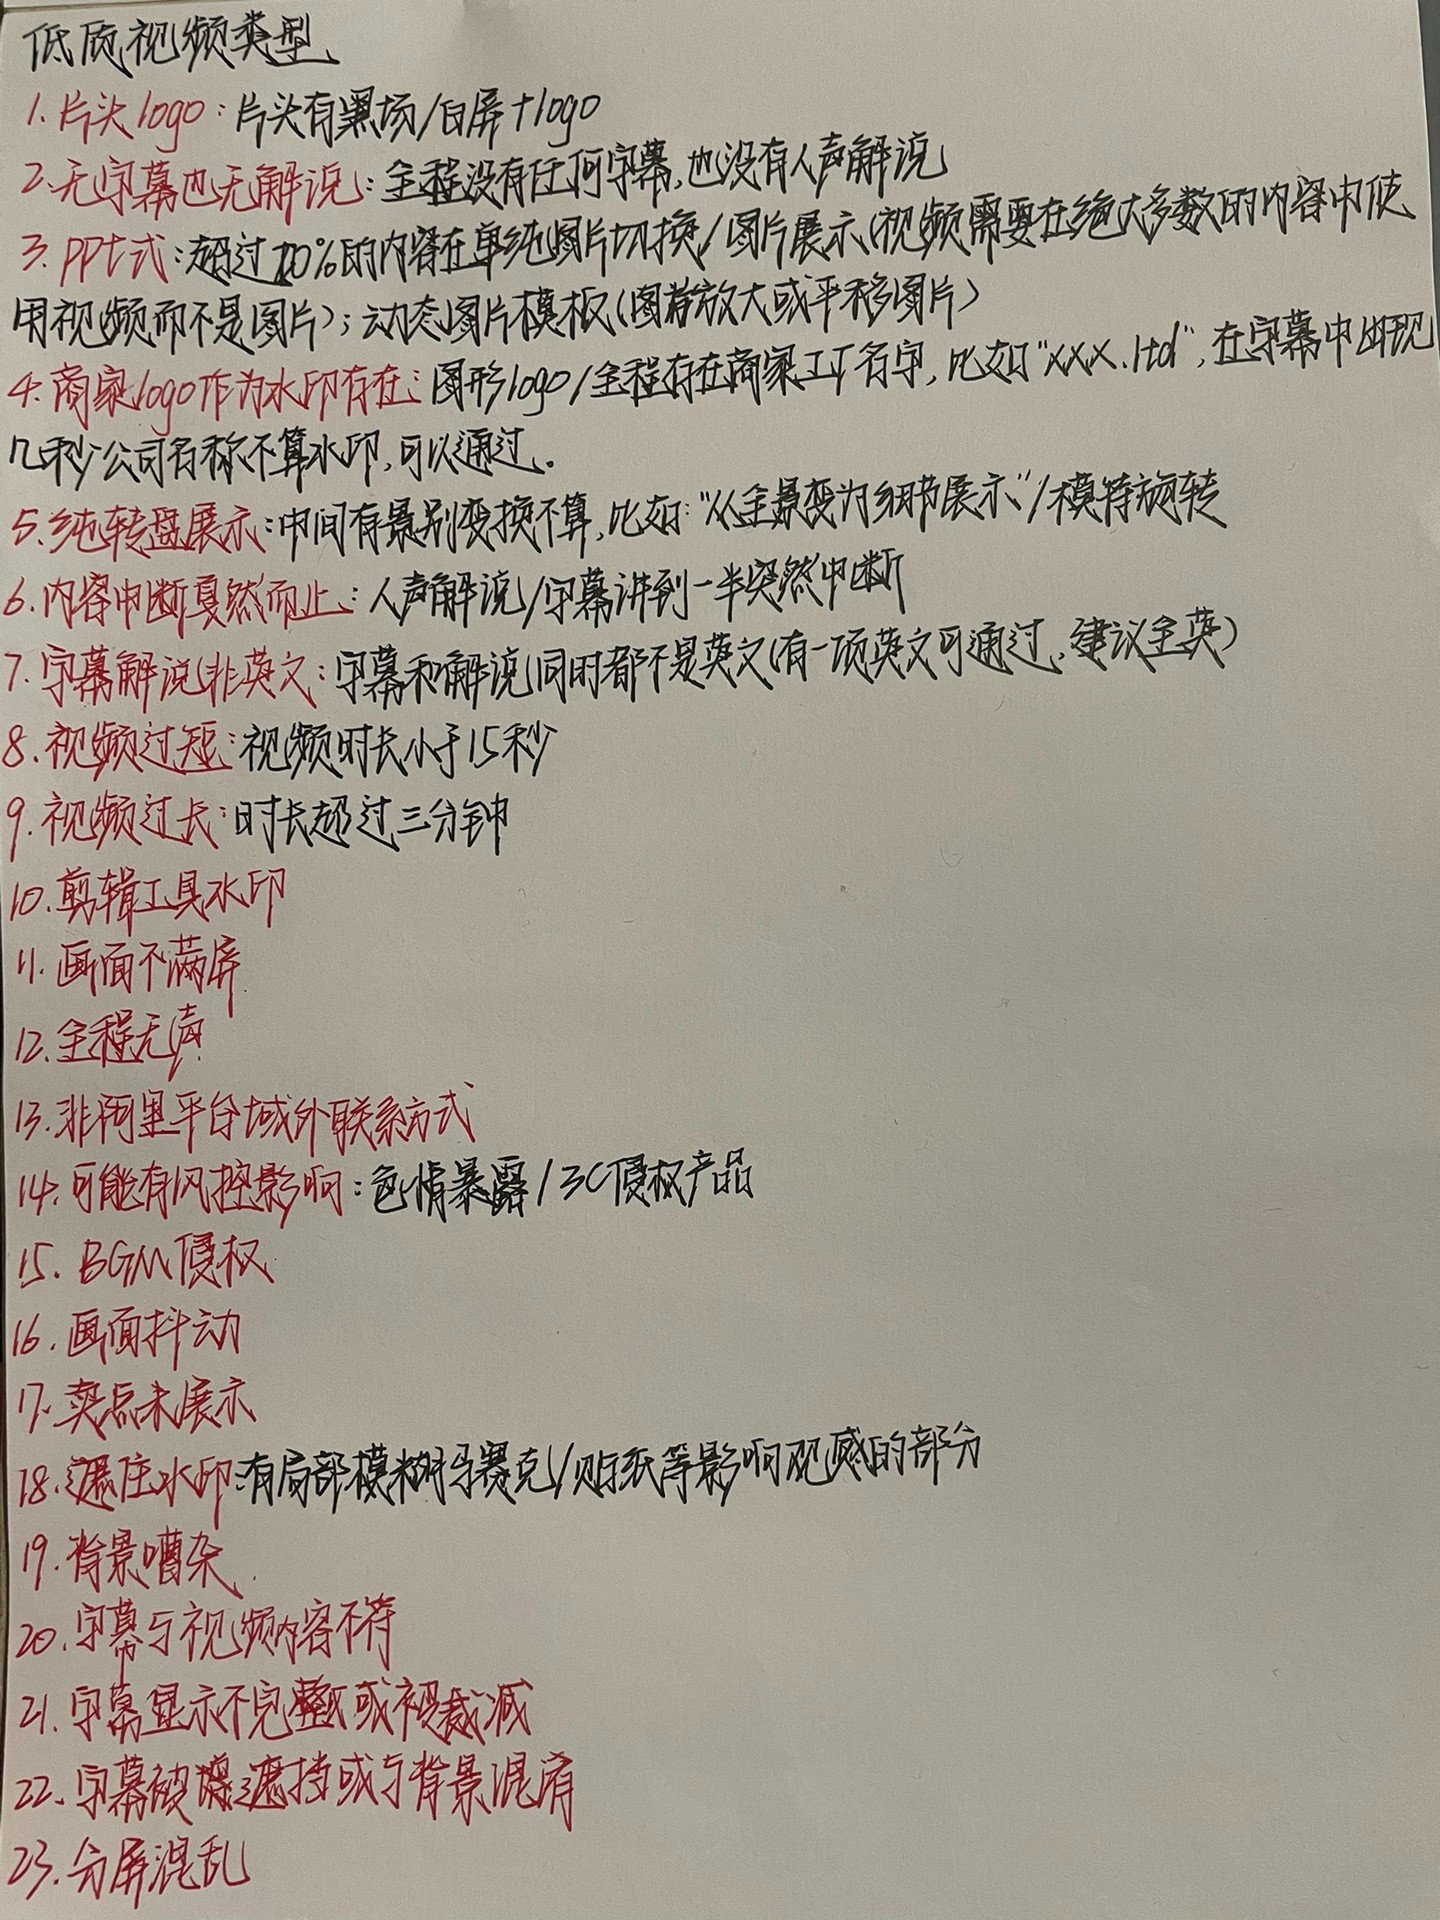 低质视频类型
1. 片头logo：片头有黑场/白屏+logo
2. 无字幕也无解说：全程没有任何字幕，也没有人声解说
3. PPt式：超过20%的内容在单纯图片切换/图片展示（视频需要在绝大多数的内容中使
用视频而不是图片）；动态图片模板（图片放大或平移图片）
4. 商家logo作为水印存在：图形logo/全程存在商家工厂名字，比如“xxx.ltd”，在字幕中出现
几秒公司名称不算水印，可以通过。
5. 纯转盘展示：中间有景别变换不算，比如：“从全景变为细节展示”/模特旋转
6. 内容中断戛然而止：人声解说/字幕讲到一半突然中断
7. 字幕解说非英文：字幕和解说同时都不是英文（有一项英文可通过，建议全英）
8. 视频过短：视频时长小于15秒
9. 视频过长：时长超过三分钟
10. 剪辑工具水印
11. 画面不满屏
12. 全程无声
13. 非阿里平台域外联系方式
14. 可能有风控影响：色情暴露/3C侵权产品
15. BGM侵权
16. 画面抖动
17. 卖点未展示
18. 遮住水印：有局部模糊马赛克/贴纸等影响观感的部分
19. 背景嘈杂
20. 字幕与视频内容不符
21. 字幕显示不完整或被裁减
22. 字幕被遮挡或与背景混淆
23. 分屏混乱